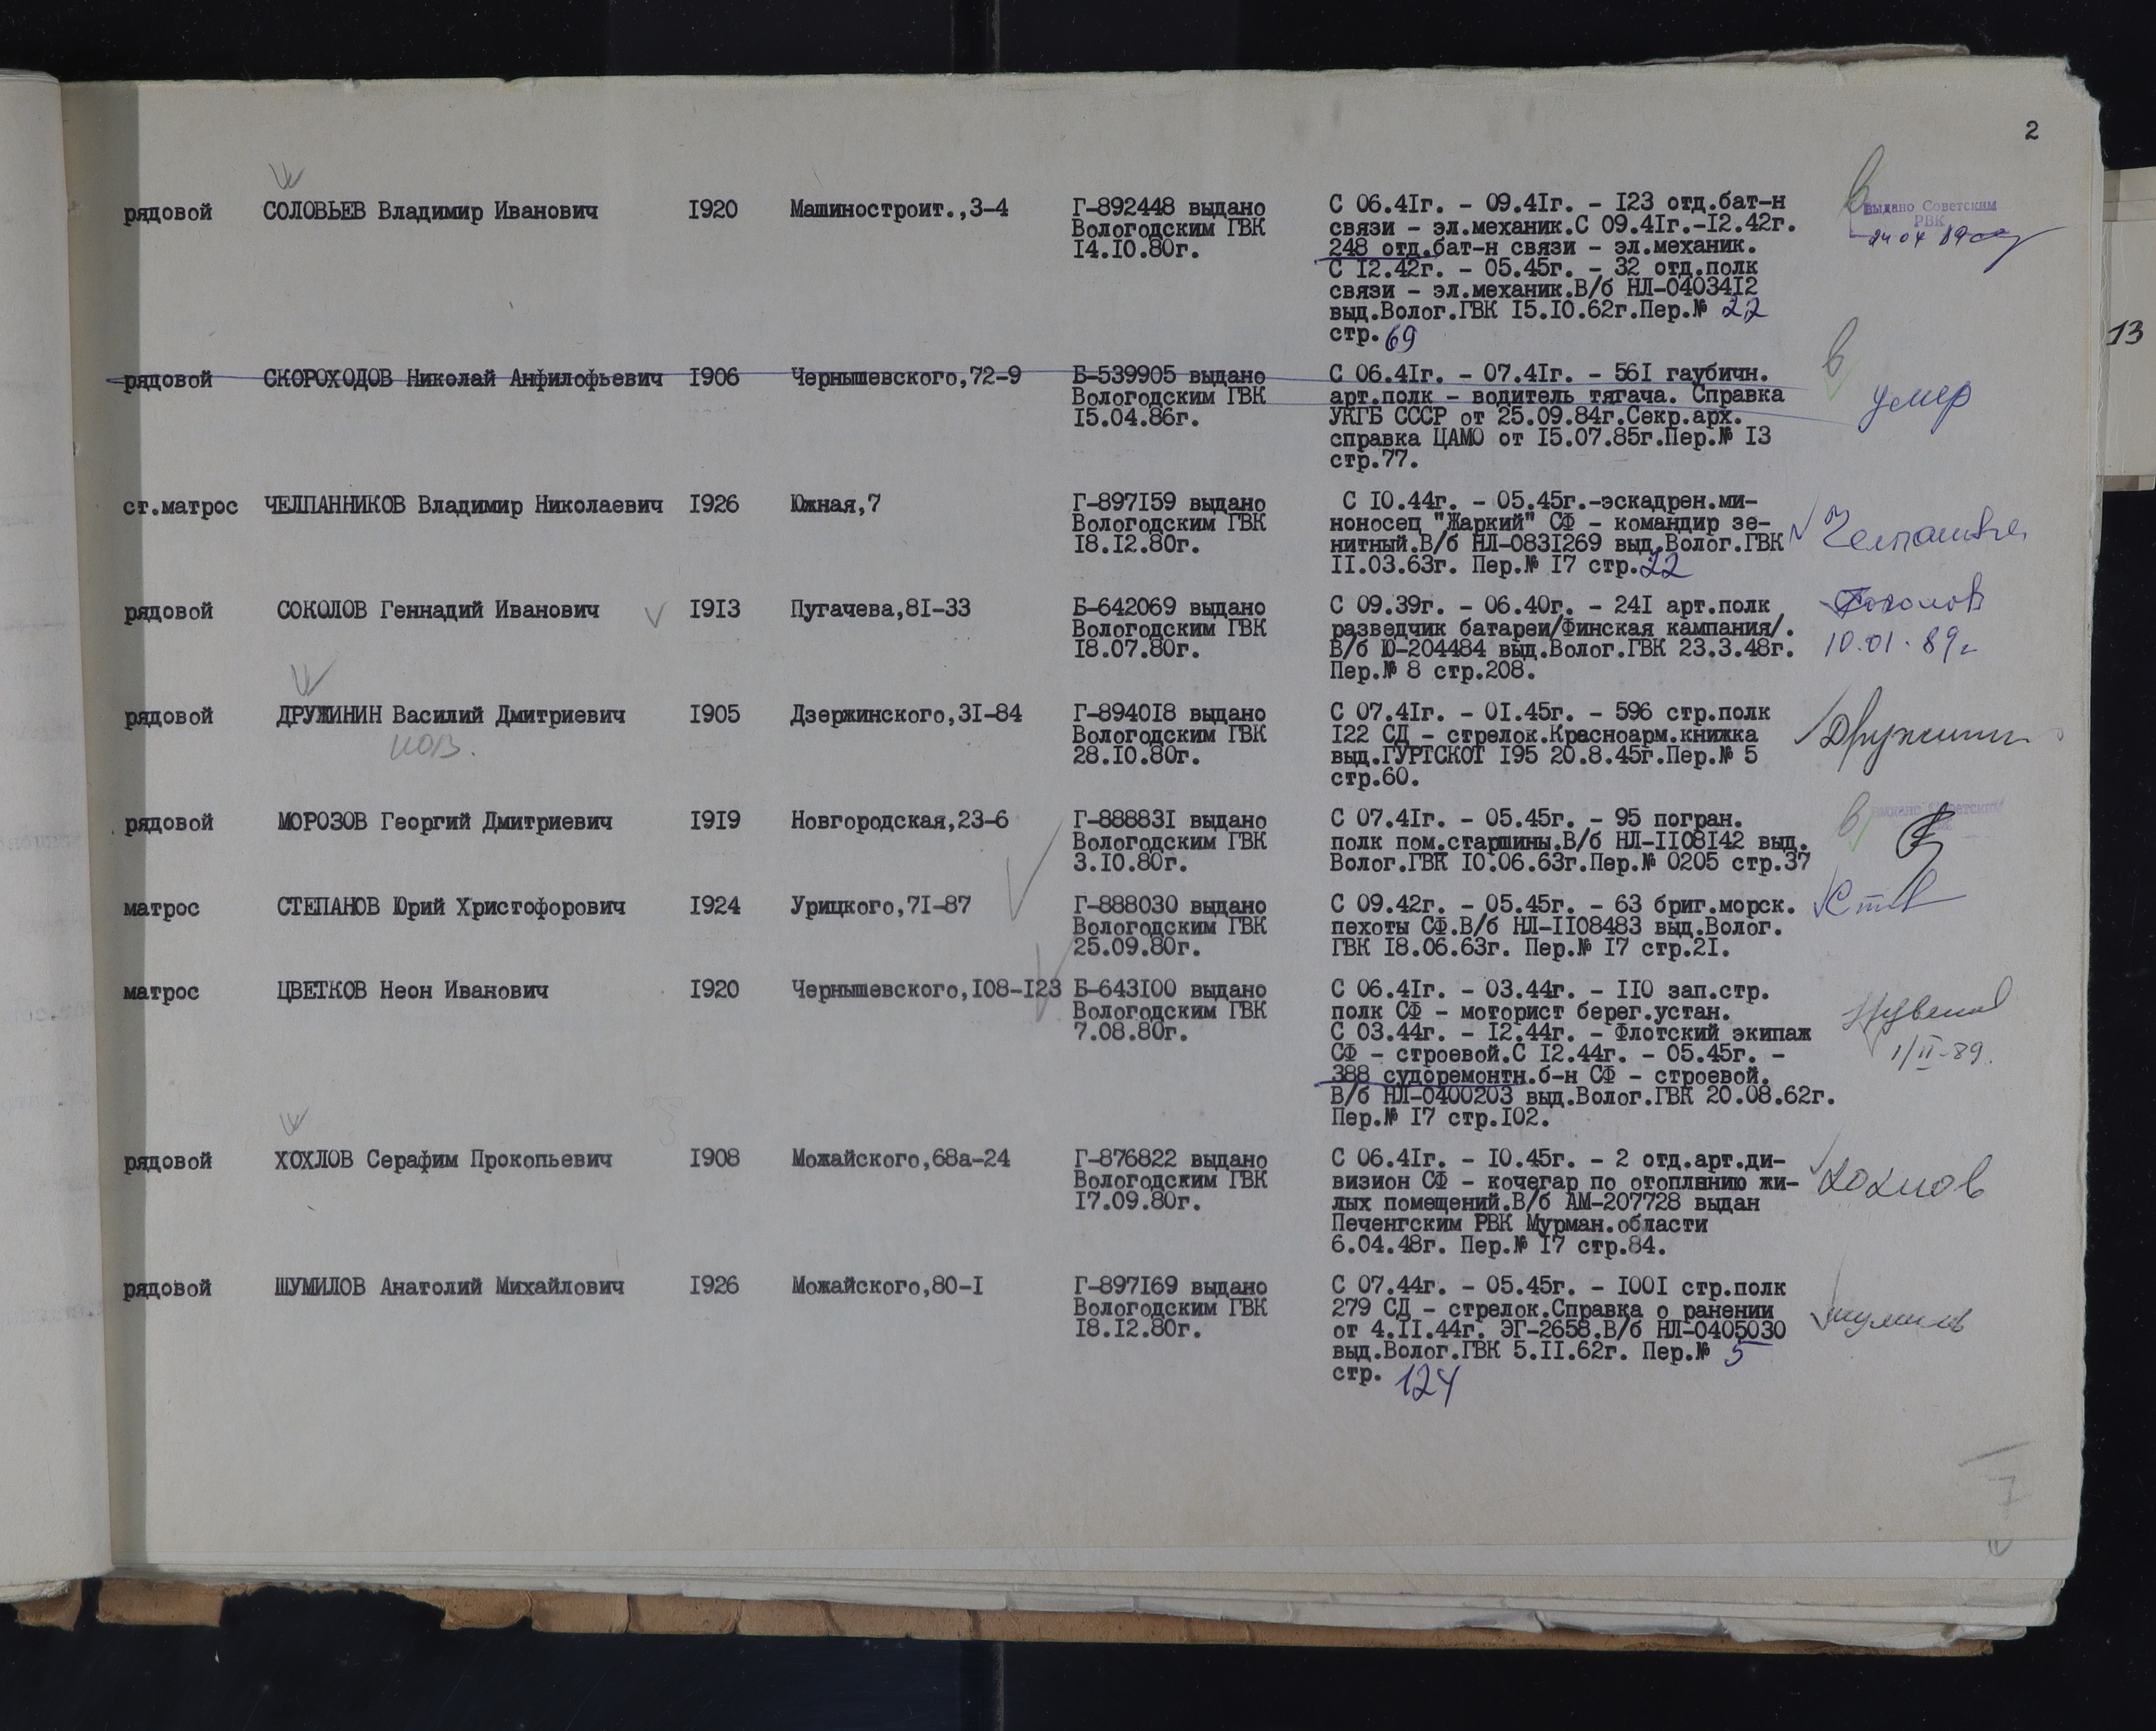 2
рядовой СОЛОВЬЕВ Владимир Иванович I920 Машиностроит.,3-4 Г-892448 выдано С 06.4Iг. - 09.4Iг. - I23 отд.бат-н
Вологодским ГВК связи - эл.механик.С 09.4Iг.-I2.42г.
I4.I0.80г. 248 отд.бат-н связи - эл.механик.
С I2.42г. - 05.45г. - 32 отд.полк
связи - эл.механик.В/б НЛ-04034I2
выд.Волог.ГВК I5.I0.62г.Пер.№ 22
стр. 69
в
Выдано Советским
РВК
24 04 89
13
рядовой СКОРОХОДОВ Николай Анфилофьевич I906 Чернышевского,72-9 Б-539905 выдано С 06.4Iг. - 07.4Iг. - 56I гаубичн.
Вологодским ГВК арт.полк - водитель тягача. Справка
I5.04.86г. УКГБ СССР от 25.09.84г.Секр.арх.
справка ЦАМО от I5.07.85г.Пер.№ I3
стр.77.
в
умер
ст.матрос ЧЕЛПАННИКОВ Владимир Николаевич I926 Южная,7 Г-897I59 выдано С I0.44г. - 05.45г.-эскадрен.ми-
Вологодским ГВК ноносец "Жаркий" СФ - командир зе-
I8.I2.80г. нитный.В/б НЛ-083I269 выд.Волог.ГВК
II.03.63г. Пер.№ I7 стр.22
рядовой СОКОЛОВ Геннадий Иванович I9I3 Пугачева,8I-33 Б-642069 выдано С 09.39г. - 06.40г. - 24I арт.полк
Вологодским ГВК разведчик батареи/Финская кампания/.
I8.07.80г. В/б Ю-204484 выд.Волог.ГВК 23.3.48г.
Пер.№ 8 стр.208.
Соколов
10.01.89г
рядовой ДРУЖИНИН Василий Дмитриевич I905 Дзержинского,3I-84 Г-8940I8 выдано С 07.4Iг. - 0I.45г. - 596 стр.полк
Вологодским ГВК I22 СД - стрелок.Красноарм.книжка
28.I0.80г. выд.ГУРТСКОТ I95 20.8.45г.Пер.№ 5
стр.60.
Дружинин
рядовой МОРОЗОВ Георгий Дмитриевич I9I9 Новгородская,23-6 Г-88883I выдано С 07.4Iг. - 05.45г. - 95 погран.
Вологодским ГВК полк пом.старшины.В/б НЛ-II08I42 выд.
3.I0.80г. Волог.ГВК I0.06.63г.Пер.№ 0205 стр.37
в
матрос СТЕПАНОВ Юрий Христофорович I924 Урицкого,7I-87 Г-888030 выдано С 09.42г. - 05.45г. - 63 бриг.морск.
Вологодским ГВК пехоты СФ.В/б НЛ-II08483 выд.Волог.
25.09.80г. ГВК I8.06.63г. Пер.№ I7 стр.2I.
матрос ЦВЕТКОВ Неон Иванович I920 Чернышевского,I08-I23 Б-643I00 выдано С 06.4Iг. - 03.44г. - II0 зап.стр.
Вологодским ГВК полк СФ - моторист берег.устан.
7.08.80г. С 03.44г. - I2.44г. - Флотский экипаж
СФ - строевой.С I2.44г. - 05.45г. -
388 судоремонтн.б-н СФ - строевой.
В/б НЛ-0400203 выд.Волог.ГВК 20.08.62г.
Пер.№ I7 стр.I02.
1/II-89.
рядовой ХОХЛОВ Серафим Прокопьевич I908 Можайского,68а-24 Г-876822 выдано С 06.4Iг. - I0.45г. - 2 отд.арт.ди-
Вологодским ГВК визион СФ - кочегар по отоплению жи-
I7.09.80г. лых помещений.В/б АМ-207728 выдан
Печенгским РВК Мурман.области
6.04.48г. Пер.№ I7 стр.84.
Хохлов
рядовой ШУМИЛОВ Анатолий Михайлович I926 Можайского,80-I Г-897I69 выдано С 07.44г. - 05.45г. - I00I стр.полк
Вологодским ГВК 279 СД - стрелок.Справка о ранении
I8.I2.80г. от 4.II.44г. ЭГ-2658.В/б НЛ-0405030
выд.Волог.ГВК 5.II.62г. Пер.№ 5
стр. 124
Шумилов
7